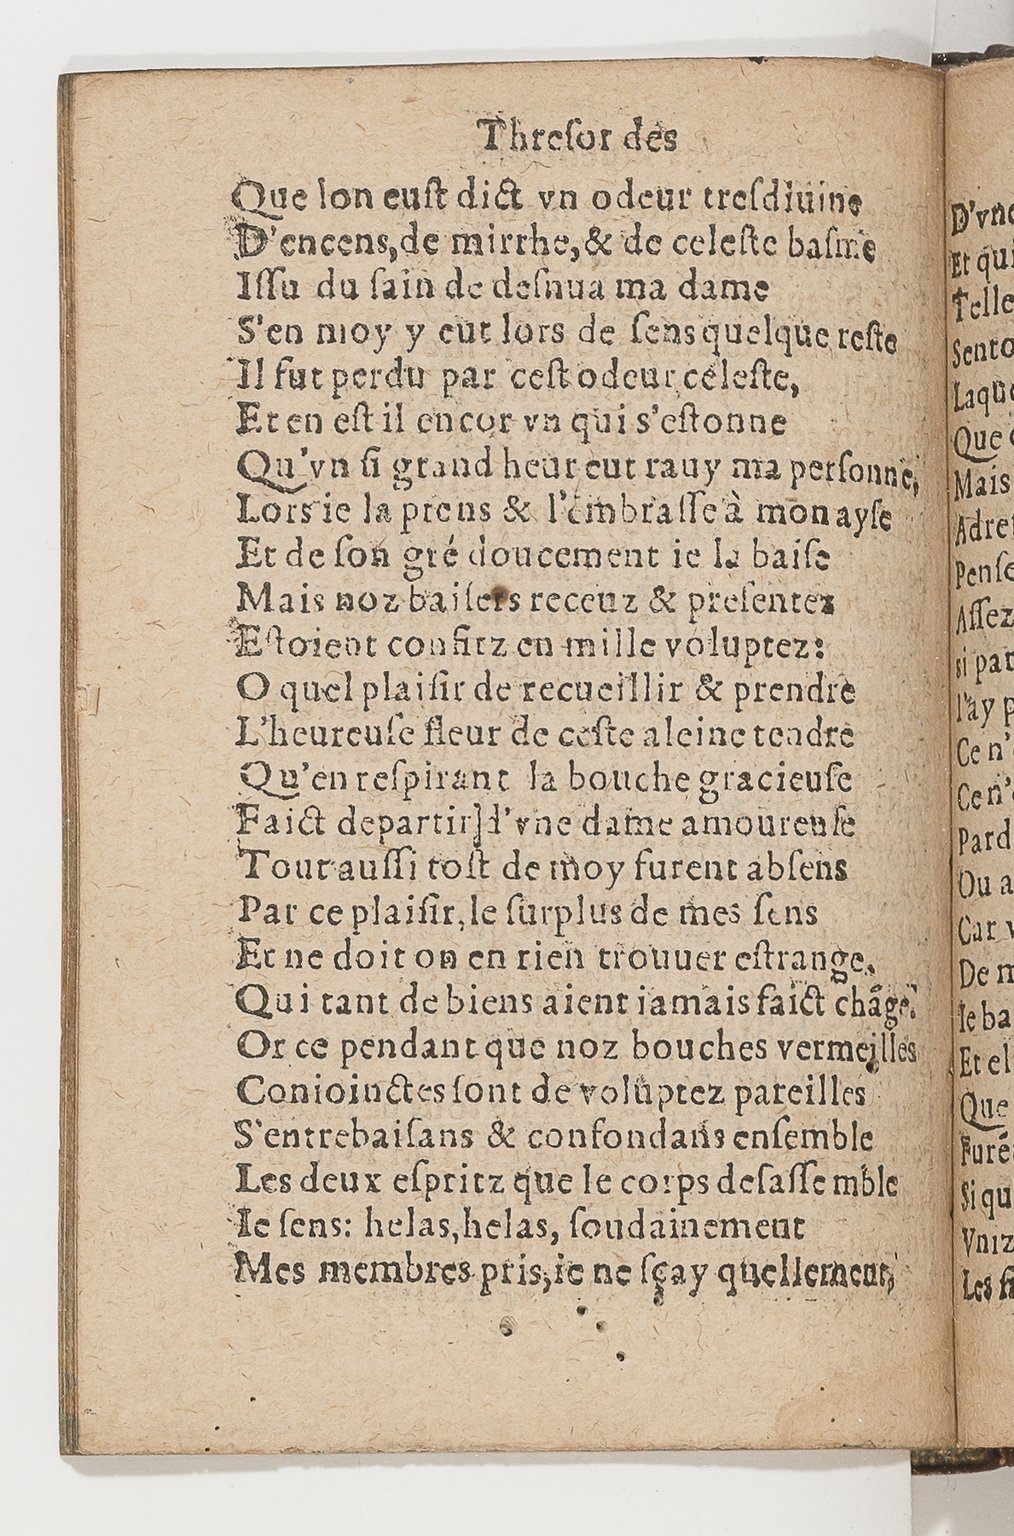 Thresor des
Que lon eust dict vn odeur tresdiuine
D'encens, de mirrhe, & de celeste basme
Issu du sain de desnua ma dame
S'en moy y eut lors de sens quelque reste
Il fut perdu par cest odeur celeste,
Et en est il encor vn qui s'estonne
Qu'vn si grand heur eut rauy ma personne,
Lors ie la prens & l'embrasse à mon ayse
Et de son gré doucement ie la baise
Mais noz baisers receuz & presentez
Estoient confitz en mille voluptez:
O quel plaisir de recueillir & prendre
L'heureuse fleur de ceste aleine tendre
Qu'en respirant la bouche gracieuse
Faict departir]d'vne dame amoureuse
Tout aussi tost de moy furent absens
Par ce plaisir, le surplus de mes sens
Et ne doit on en rien trouuer estrange,
Qui tant de biens aient iamais faict chāge.
Or ce pendant que noz bouches vermeilles
Conioinctes sont de voluptez pareilles
S'entrebaisans & confondans ensemble
Les deux espritz que le corps desassemble
Ie sens: helas, helas, soudainement
Mes membres pris, ie ne sçay quellement,
D'vne
Et qui
Telle
Sento
Laque
Que
Mais
Adre
Pense
Assez
si par
l'ay p
Ce n'
Ce n'
Pard
Ou a
Car v
De m
Ie ba
Et el
Que
Furē
Si qu
Vniz
Les fi